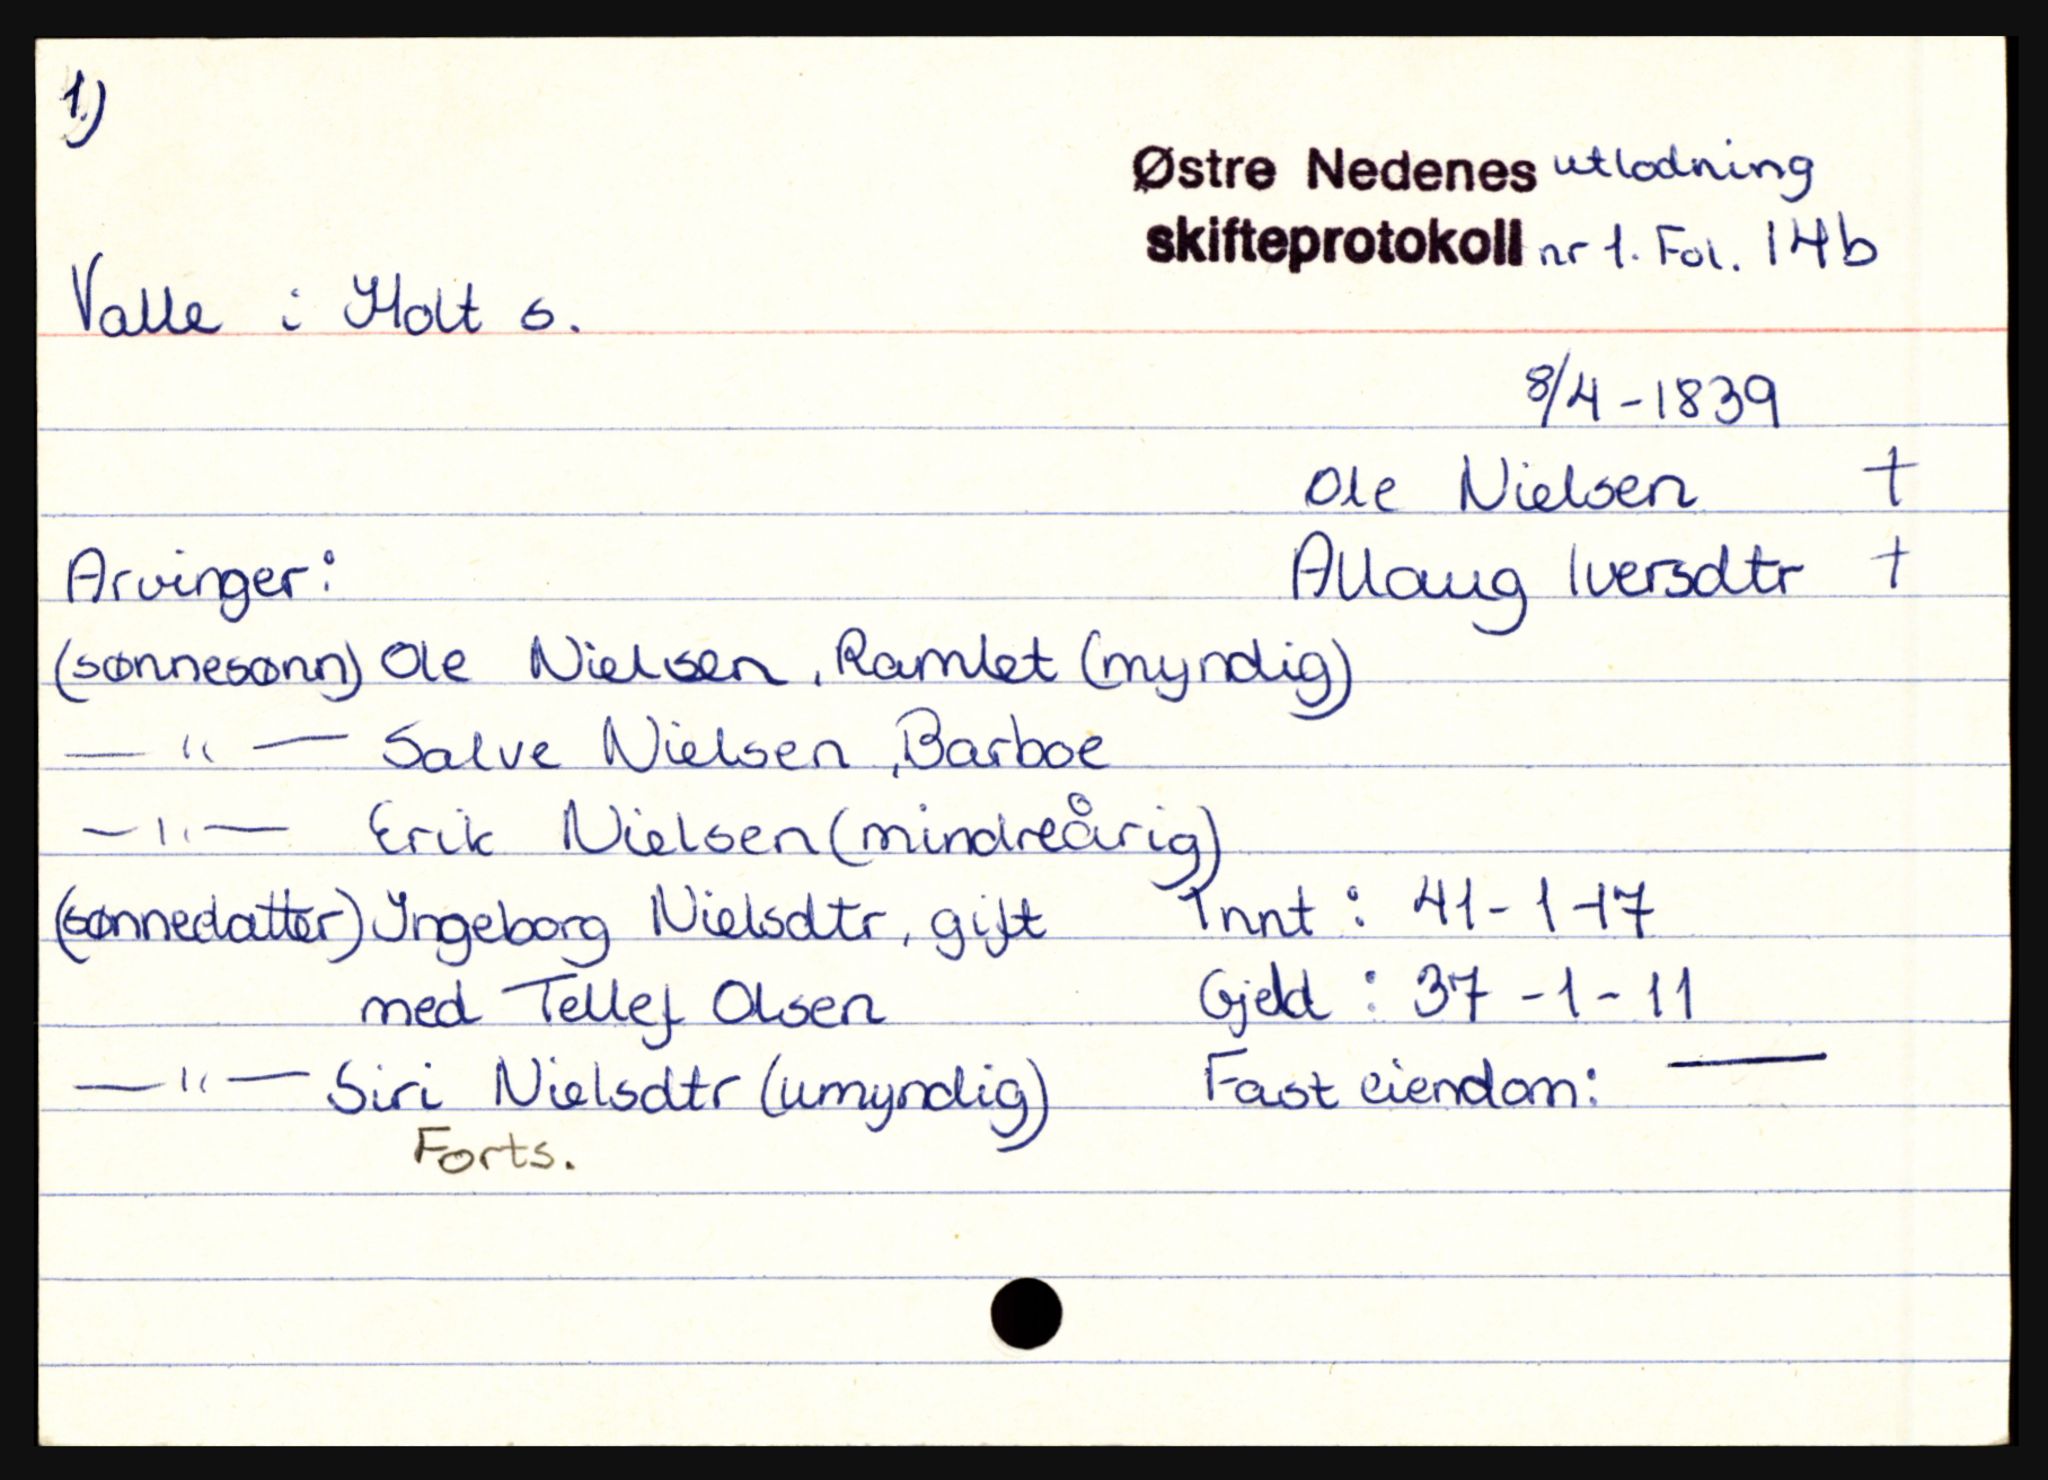 1)
Østre Nedenes utlodning
skifteprotokoll nr 1. Fol. 14b
Valle i Holt s.
8/4-1839
Ole Nielsen †
Arvinger: Allaug Iversdtr †
(sønnesønn) Ole Nielsen, Ramlet (myndig)
—"— Salve Nielsen, Barboe
—"— Erik Nielsen (mindreårig)
(sønnedatter) Ingeborg Nielsdtr, gift Innt: 41-1-17
med Tellef Olsen Gjeld: 37-1-11
—"— Siri Nielsdtr (umyndig) Fast eiendom: —
Forts.